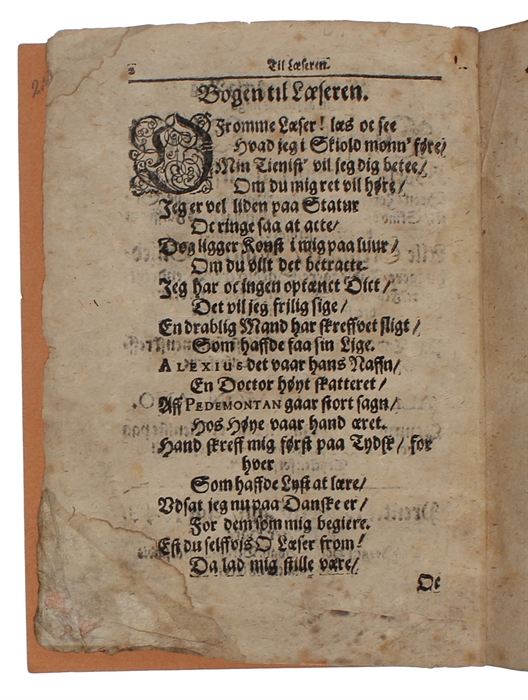 2
Til Læseren.
Bogen til Læseren.
O Fromme Læser! læs oc see
Hvad jeg i Skiold monn' føre/
Min Tienist' vil jeg dig betee/
Om du mig ret vil høre/
Jeg er vel liden paa Statur
Oc ringe saa at acte/
Dog ligger Konst i mig paa luur/
Om du vilt det betracte.
Jeg har oc ingen optænct Dict/
Det vil jeg frilig sige/
En drablig Mand har skreffvet sligt/
Som haffde faa sin Lige.
ALEXIUS det vaar hans Naffn/
En Doctor høyt skatteret/
Aff PEDEMONTAN gaar stort sagn/
Hos Høye vaar hand æret.
Hand skreff mig først paa Tydsk/ for
hver
Som haffde Lyst at lære/
Vdsat jeg nu paa Danske er/
For dem som mig begiere.
Est du selffvijs O Læser from!
Da lad mig stille være/
Oc